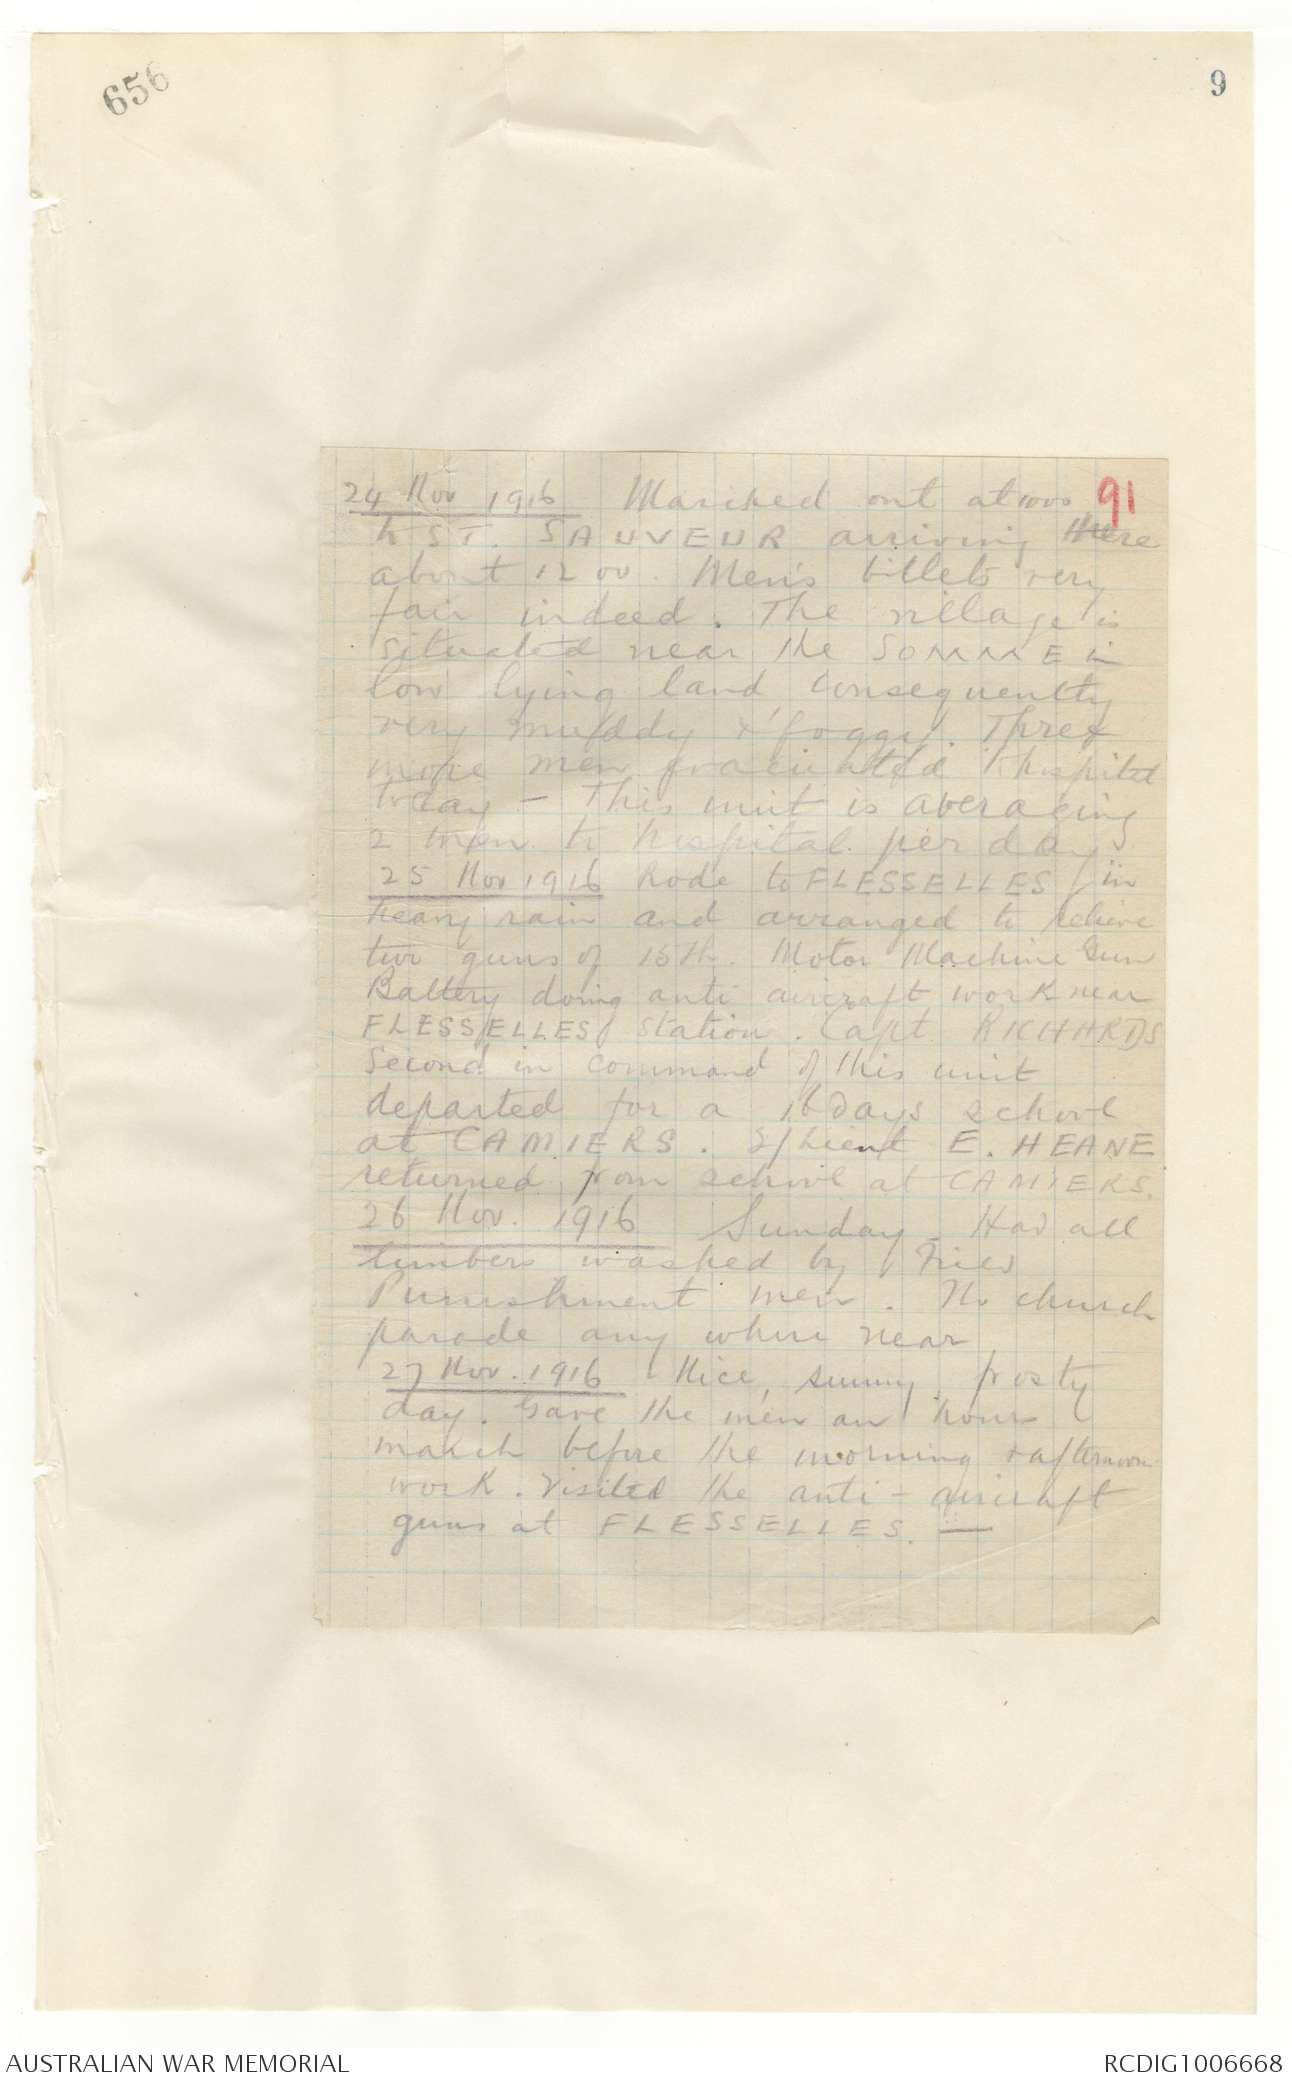 656
9
91
24 Nov 1916 Marched out at 1000
to ST. SAUVEUR arriving there
about 1200. Men's billets very
fair indeed. The village is
situated near the SOMME in
low lying land, consequently
very muddy & foggy. Three
more men evacuated to hospital
today - This unit is averaging
2 men to hospital per day
25 Nov 1916 Rode to FLESSELLES in
heavy rain and arranged to relieve
two guns of 15th. Motor Machine Gun
Battery doing anti aircraft work near
FLESSELLES station. Capt. RICHARDS
second in command of this unit
departed for a 16 days school
at CAMIERS. 2/Lieut E. HEANE
returned from school at CAMIERS.
26 Nov. 1916 Sunday Had all
limbers washed by Field
Punishment men. No church
parade any where near
27 Nov. 1916 Nice, sunny frosty
day. Gave the men an hours
march before the morning & afternoon
work. Visited the anti-aircraft
guns at FLESSELLES. —
AUSTRALIAN WAR MEMORIAL
RCDIG1006668